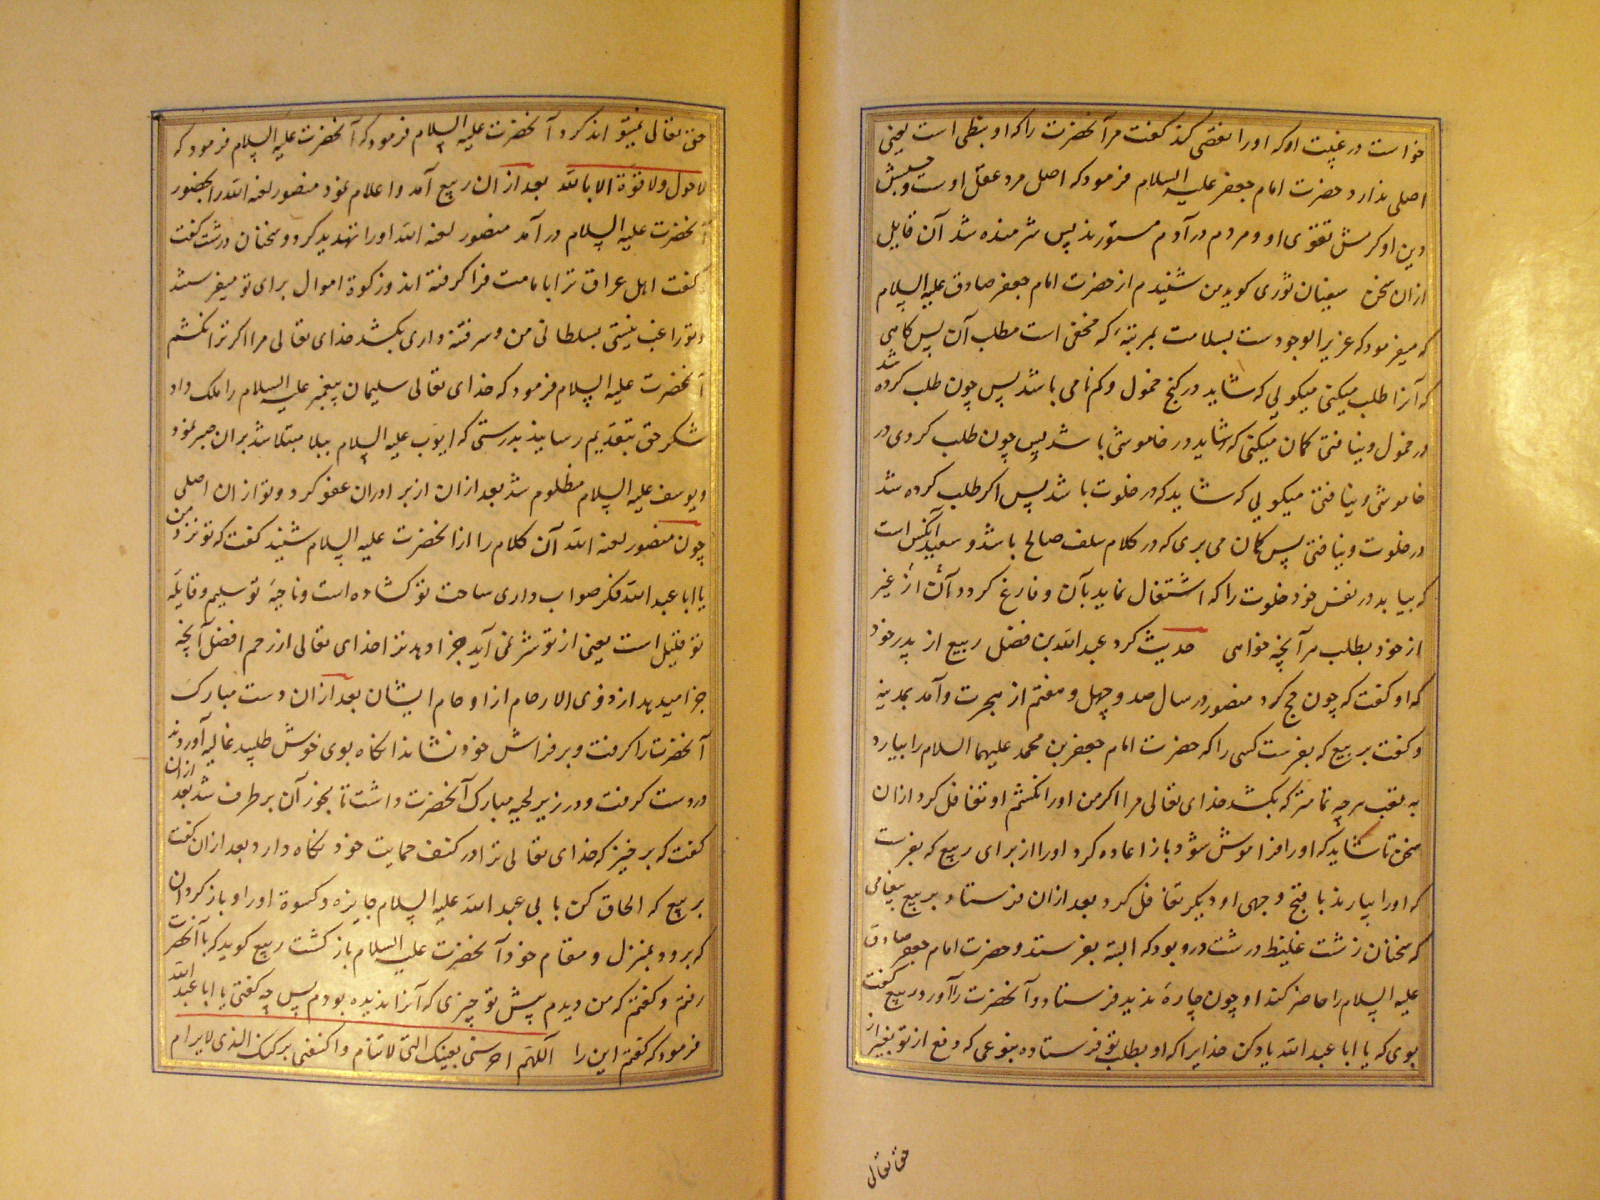 خواست در غیبت او که او را بغضی کند گفت مر آنحضرت را که او بنطی است یعنی
اصلی ندارد حضرت امام جعفر علیه السلام فرمود که اصل مرد عقل اوست و حسبش
دین او کرمش تقوی او و مردم در آدم مستورند پس شرمنده شد آن قایل
ازان سخن سفیان ثوری کوید من شنیدم از حضرت امام جعفر صادق علیه السلام
که میفرمود که عزیز الوجودست بسلامت بمرتبهٔ که مخفی است مطلب آن پس کاهی
که آنرا طلب میکنی میکویی که شاید در کنج خمول و کم نامی باشد پس چون طلب کرده شد
در خمول و نیافتی کمان میکنی که شاید در خاموشی باشد پس چون طلب کردی در
خاموشی و نیافتی میکویی که شاید که در خلوت باشد پس اکر طلب کرده شد
در خلوت و نیافتی پس کمان می بری که در کلام سلف صالح باشد و سعید آنکس است
که بیابد در نفس خود خلوت را که اشتغال نماید بآن و فارغ کردد آن از غیر
از خود بطلب هر آنچه خواهی حدیث کرد عبد الله بن فضل ربیع از پدر خود
که او گفت که چون حج کرد منصور در سال صد و چهل و هفتم از هجرت و آمد بمدینه
و کفت بربیع که بفرست کسی را که حضرت امام جعفر بن محمد علیهما السلام را بیارد
به تعب هر چه تمامتر که بکشد خدای تعالی مرا اکر من او را نکشم او تغافل کرد ازان
سخن تا شاید که او را فراموش شود باز اعاده کرد او را از برای ربیع که بفرست
که او را بیارند با قبح وجهی او دیکر تغافل کرد بعد ازان فرستاد بربیع پیغامی
که سخنان زشت غلیظ درشت درو بود که البته بفرستد و حضرت امام جعفر صادق
علیه السلام را حاضر کند او چون چارهٔ ندید فرستاد و آنحضرت را آورد ربیع کفت
بوی که یا ابا عبد الله یاد کن خدایرا که او بطلب تو فرستاده بنوعی که دفع از تو بغیر از
حق تعالی
حق تعالی نمیتواند کرد آنحضرت علیه السلام فرمود که آنحضرت علیه السلام فرمود که
لا حول ولا قوة الا بالله بعد ازان ربیع آمد و اعلام نمود منصور لعنه الله را بحضور
آنحضرت علیه السلام در آمد منصور لعنه الله او را تهدید کرد و سخنان درشت کفت
کفت اهل عراق ترا بامامت فرا کرفته اند و زکوة اموال برای تو میفرستند
و تو راغب نیستی بسلطانی من و سر فتنه داری بکشد خدای تعالی مرا اکر ترا نکشم
آنحضرت علیه السلام فرمود که خدای تعالی سلیمان پیغمبر علیه السلام را ملک داد
شکر حق بتقدیم رسانید بدرستی که ایوب علیه السلام ببلا مبتلا شد بران صبر نمود
و یوسف علیه السلام مظلوم شد بعد ازان از برادران عفو کرد و تو ازان اصلی
چون منصور لعنه الله آن کلام را از آنحضرت علیه السلام شنید کفت که تو نزد من
یا ابا عبد الله فکر صواب داری ساحت تو کشاده است و ناجهٔ تو سلیم و قایلهٔ
تو قلیل است یعنی از تو شر نمی آید جزا دهد ترا خدای تعالی از رحم افضل آنچه
جزا میدهد از ذوی الارحام از ارحام ایشان بعد ازان دست مبارک
آنحضرت را کرفت و بر فراش خود نشاند انکاه بوی خوش طلبید غالیه آوردند
در دست کرفت و در زیر لحیه مبارک آنحضرت داشت تا بخور آن بر طرف شد بعد ازان
کفت که بر خیز که خدای تعالی ترا در کنف حمایت خود نکاه دارد بعد ازان کفت
بربیع که الحاق کن بابی عبد الله علیه السلام جایزه و کسوة او را و باز کردان
که برود بمنزل و مقام خود آنحضرت علیه السلام باز کشت ربیع کوید که با آنحضرت
رفتم و کفتم که من دیدم پیش تو چیزی که آنرا ندیده بودم پس چه کفتی یا ابا عبد الله
فرمود که کفتم این را اللهم احرسنی بعینک التی لا تنام واکنفنی برکنک الذی لا یرام